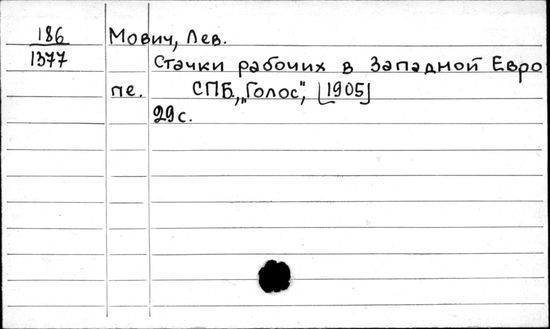 186 Мович, Лев.
1377 Стачки рабочих в Западной Евро
пе. СПБ., "Голос", [1905]
29 с.